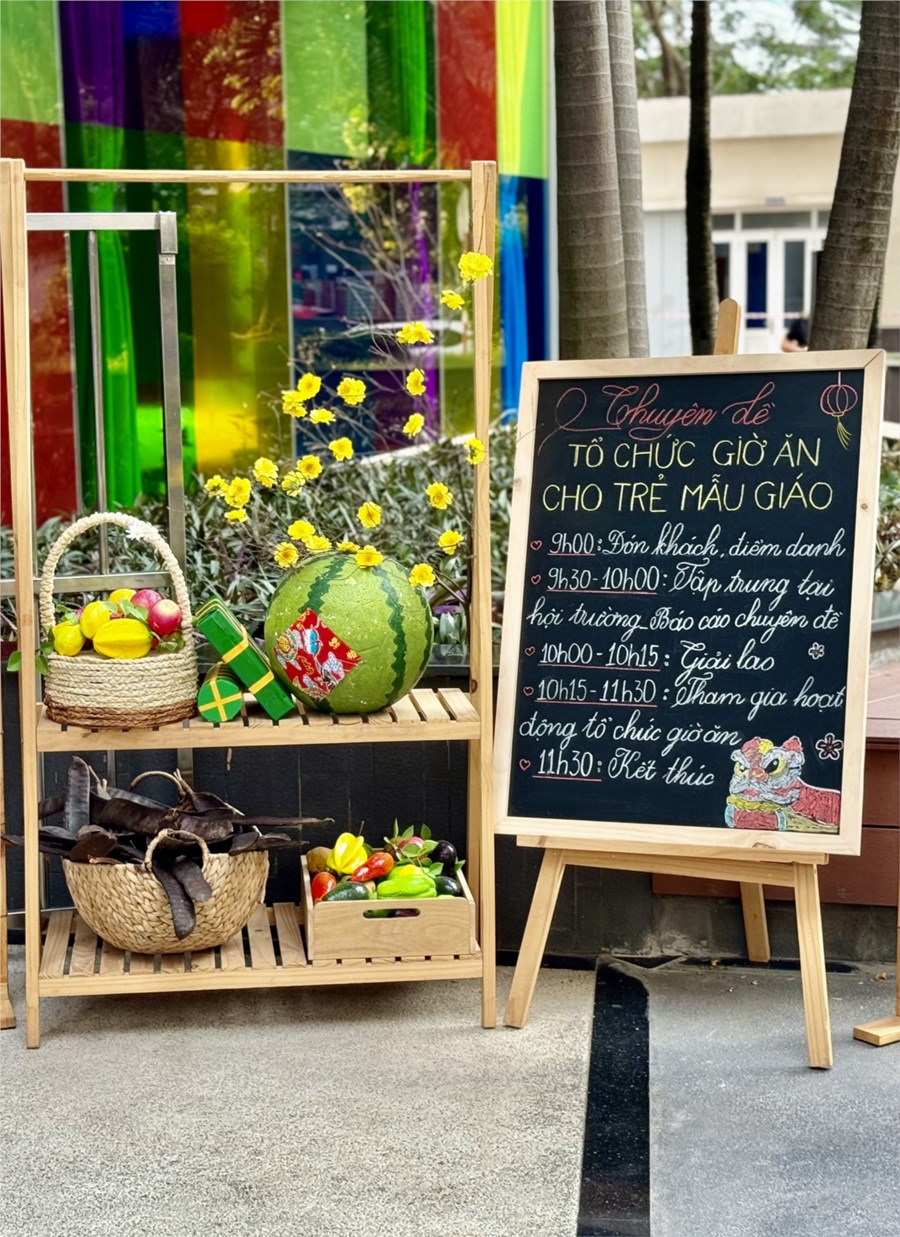 Chuyên đề
TỔ CHỨC GIỜ ĂN
CHO TRẺ MẪU GIÁO
9h00: Đón khách, điểm danh
9h30-10h00: Tập trung tại
hội trường_Báo cáo chuyên đề
10h00-10h15: Giải lao
10h15-11h30: Tham gia hoạt
động tổ chức giờ ăn
11h30: Kết thúc